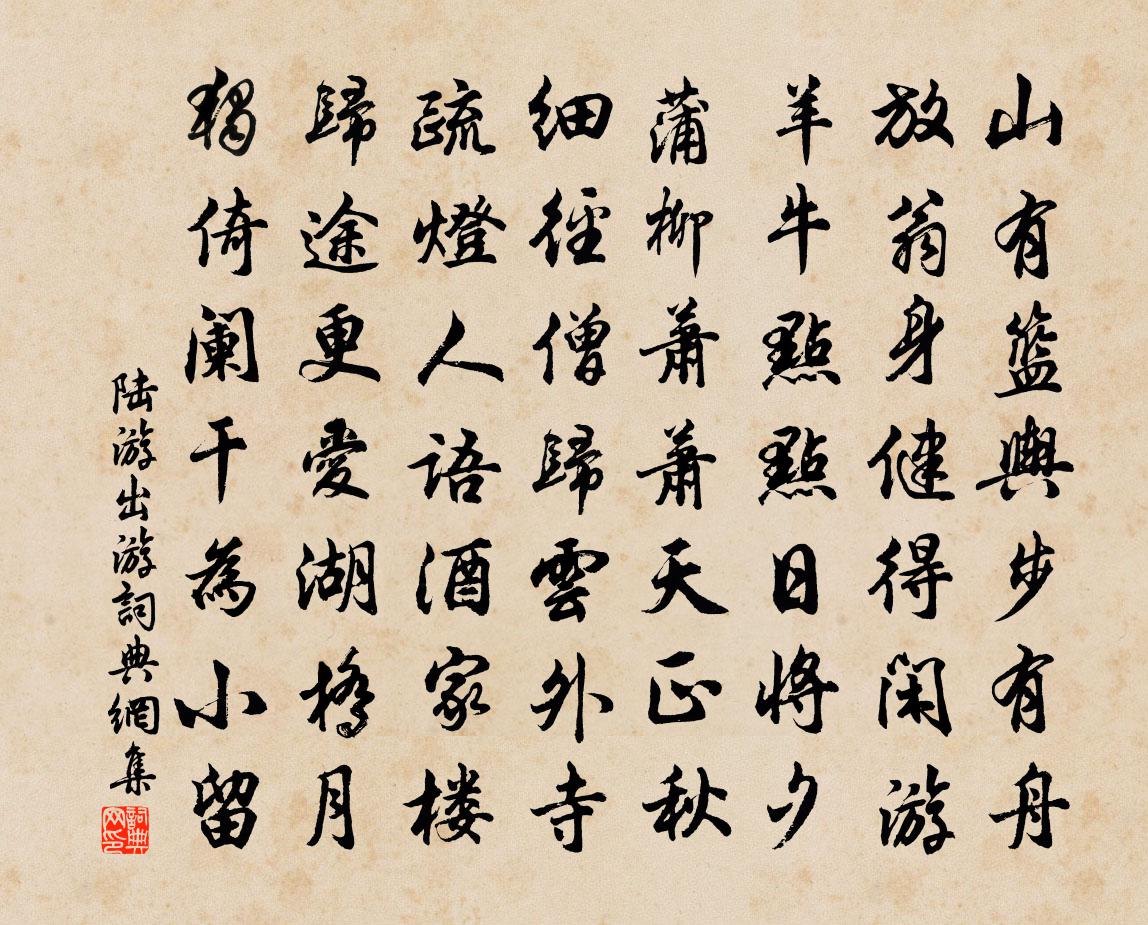 山有籃輿步有舟
放翁身健得閑游
羊牛點點日將夕
蒲柳蕭蕭天正秋
細徑僧歸雲外寺
疏燈人語酒家樓
歸途更愛湖橋月
獨倚闌干為小留
陆游出游詞典網集
詞典网印